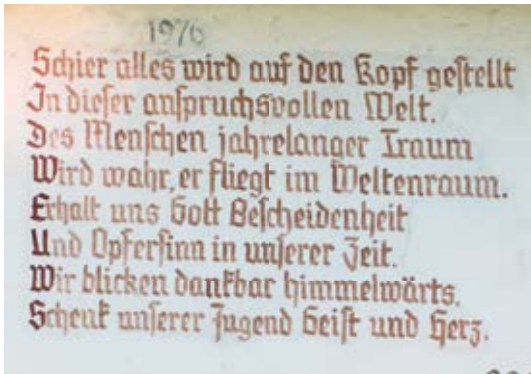 1976
Schier alles wird auf den Kopf gestellt
In dieser anspruchsvollen Welt.
Des Menschen jahrelanger Traum
Wird wahr, er fliegt im Weltenraum.
Erhalt uns Gott Bescheidenheit
Und Opfersinn in unserer Zeit.
Wir blicken dankbar himmelwärts.
Schenk unserer Jugend Geist und Herz.